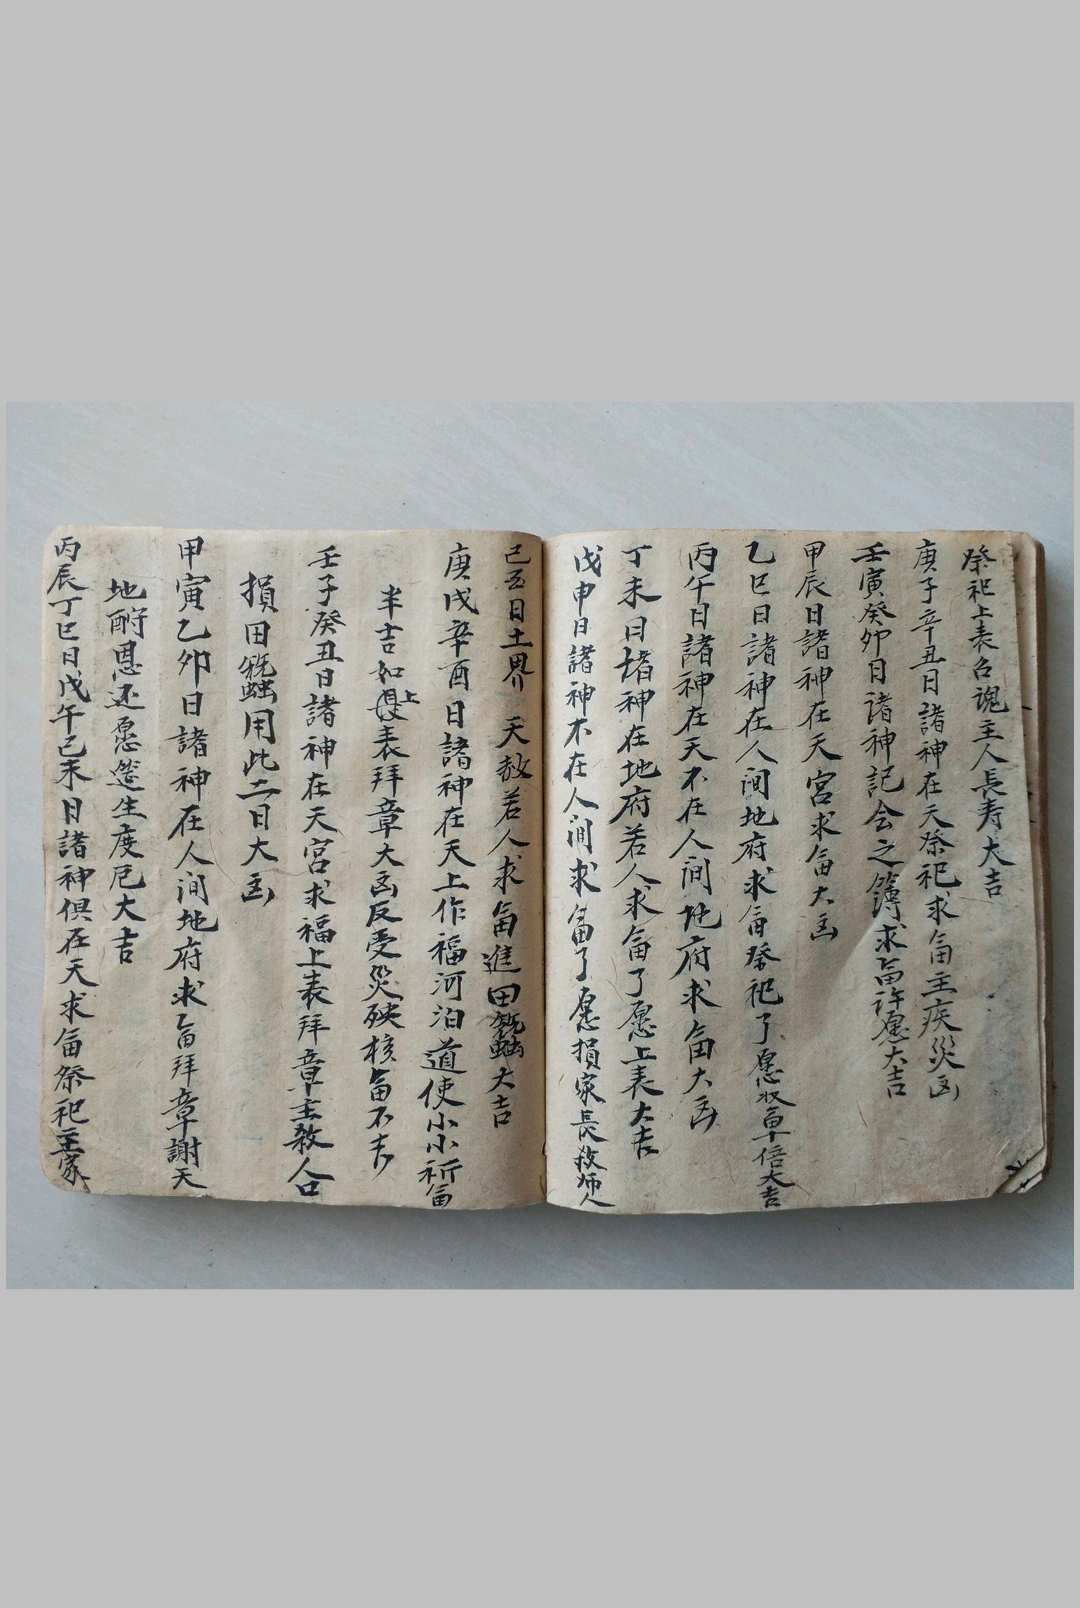 祭祀上表召魂主人長寿大吉
庚子辛丑日諸神在天祭祀求畗主疾災凶
壬寅癸卯日诸神記会之簿求畗許愿大吉
甲辰日諸神在天宮求畗大凶
乙巳日諸神在人间地府求畗祭祀了愿收倍大吉
丙午日諸神在天不在人间地府求畗大凶
丁未日諸神在地府若人求畗了愿上表大吉
戊申日諸神不在人间求畗了愿損家長救师人
己酉日土界天赦若人求畗進田蚕大吉
庚戌辛酉日諸神在天上作福河泊道使小小祈畗
半吉如上表拜章大凶反受災殃核畗不吉
壬子癸丑日諸神在天宮求福上表拜章主教人口
損田蚕用此二日大凶
甲寅乙卯日諸神在人间地府求畗拜章謝天
地酧恩还愿遊生度厄大吉
丙辰丁巳日戊午己未日諸神俱在天求畗祭祀主家